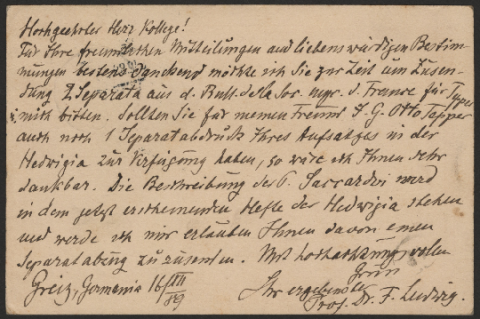 Hochgeehrter Herr Kollege!
Für Ihre freundlichen Mitteilungen und liebenswürdigen Bestim-
mungen bestens dankend möchte ich Sie zur Zeit um Zusen-
dung 2 Separata aus d. Bull. de la Soc. myc. d. France für
mich bitten. Sollten Sie für meinen Freund J. G. Otto Tepper
auch noch 1 Separatabdruck Ihres Aufsatzes in der
Hedwigia zur Verfügung haben, so wäre ich Ihnen sehr
dankbar. Die Beschreibung des P. Saccardoi wird
in dem jetzt erscheinenden Hefte der Hedwigia stehen
und werde ich mir erlauben Ihnen davon einen
Separatabzug zu zusenden. Mit hochachtungsvollem
Gruss
Greiz, Germania 16/XII 89
Ihr ergebenster
Prof. Dr. F. Ludwig.